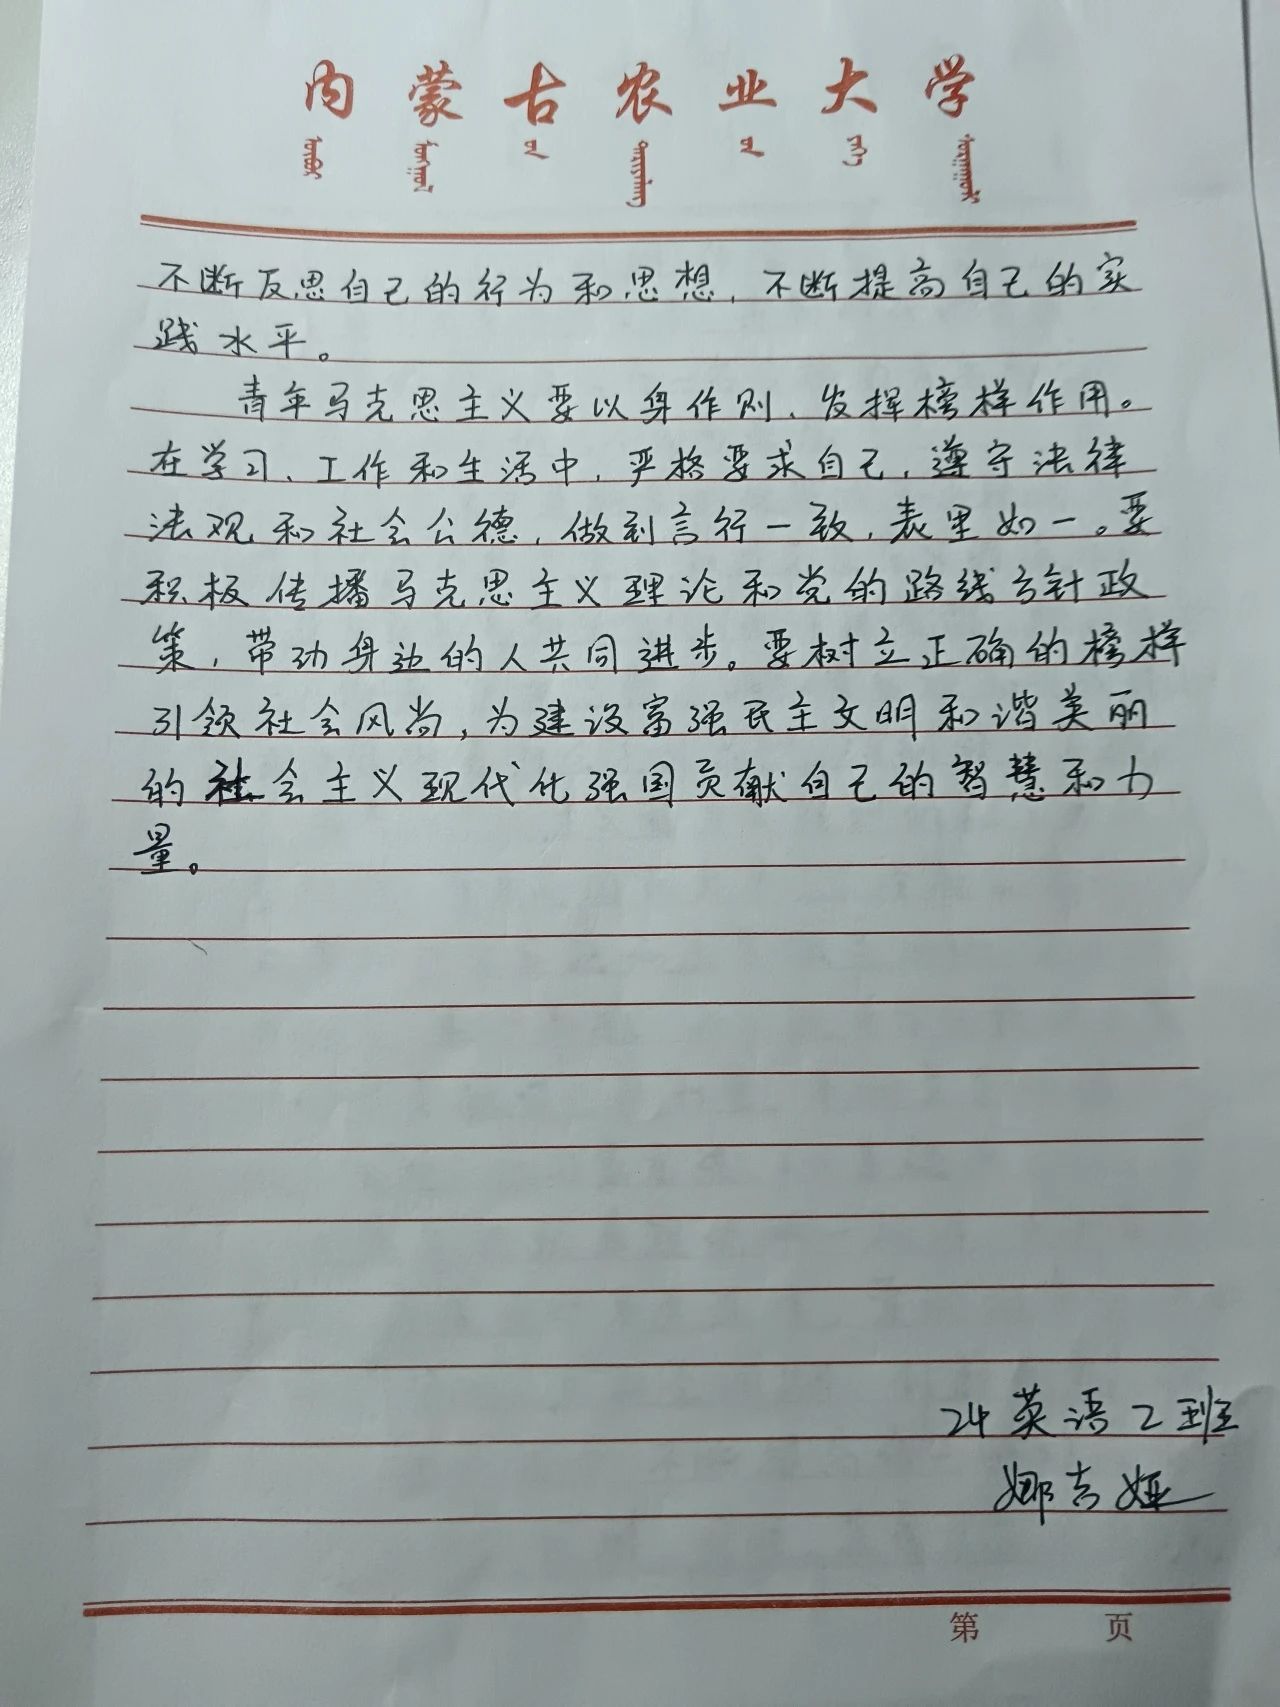 内蒙古农业大学
不断反思自己的行为和思想，不断提高自己的实
践水平。
青年马克思主义要以身作则、发挥榜样作用。
在学习、工作和生活中，严格要求自己，遵守法律
法观和社会公德，做到言行一致，表里如一。要
积极传播马克思主义理论和党的路线方针政
策，带动身边的人共同进步。要树立正确的榜样
引领社会风尚，为建设富强民主文明和谐美丽
的社会主义现代化强国贡献自己的智慧和力
量。
24英语2班
娜吉娅
第 页